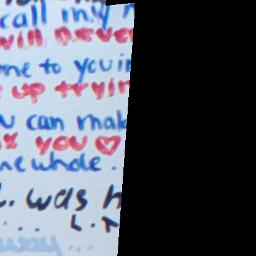 call my
will never
me to you
up tryin
can mak
you ♡
me whole.
. was h
.... L.
way ...